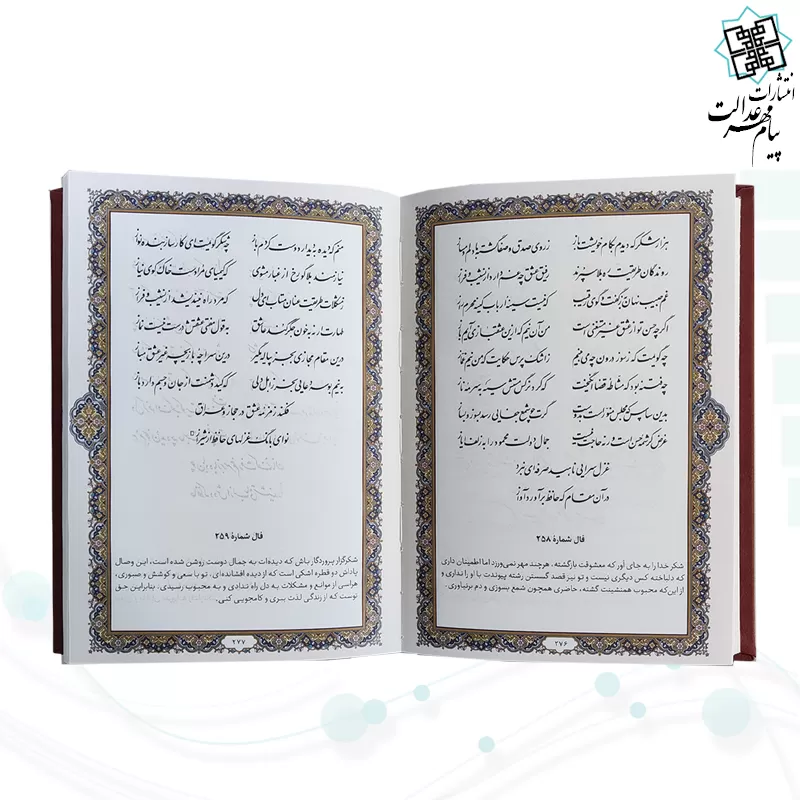 انتشارات
پیام مهر عدالت
هزار شکر که دیدم به کام خویشت باز ز روی صدق و صفا گشته با دلم دمساز
روندگان طریقت ره بلا سپرند رفیق عشق چه غم دارد از نشیب و فراز
غم حبیب نهان به ز گفت و گوی رقیب که نیست سینهٔ ارباب کینه محرم راز
اگر چه حسن تو از عشق غیر مستغنی‌ست من آن نیم که ازین عشقبازی آیم باز
چه گویمت که ز سوز درون چه می‌بینم ز اشک پرس حکایت که من نیم غماز
چه فتنه بود که مشاطهٔ قضا انگیخت که کرد نرگس مستش سیه به سرمهٔ ناز
بدین سپاس که مجلس منور است به دوست گرت چو شمع جفایی رسد بسوز و بساز
غرض کرشمهٔ حسن است ورنه حاجت نیست جمال دولت محمود را به زلف ایاز
غزل سرایی ناهید صرفه‌ای نبرد
در آن مقام که حافظ برآورد آواز
فال شمارهٔ ۲۵۸
شکر خدا را به جای آور که معشوقت بازگشته، هرچند مهر نمی‌ورزد اما اطمینان داری
که دلباخته کس دیگری نیست و تو نیز قصد گسستن رشته پیوندت با او را نداری و
از این‌که محبوب همنشینت گشته، حاضری همچون شمع بسوزی و دم برنیاوری.
۲۷۶
منم که دیده به دیدار دوست کردم باز چه شکر گویمت ای کارساز بنده نواز
نیازمند بلا گو رخ از غبار مشوی که کیمیای مراد است خاک کوی نیاز
ز مشکلات طریقت عنان متاب ای دل که مرد راه نیندیشد از نشیب و فراز
طهارت ار نه به خون جگر کند عاشق به قول مفتی عشقش درست نیست نماز
درین مقام مجازی بجز پیاله مگیر درین سراچهٔ بازیچه غیر عشق مباز
به نیم بوسه دعایی بخر ز اهل دلی که کید دشمنت از جان و جسم دارد باز
فکند زمزمهٔ عشق در حجاز و عراق
نوای بانگ غزلهای حافظ از شیراز
فال شمارهٔ ۲۵۹
شکرگزار پروردگار باش که دیده‌ات به جمال دوست روشن شده است، این وصال
پاداش دو قطره اشکی است که از دیده افشانده‌ای، تو با سعی و کوشش و صبوری،
هراسی از موانع و مشکلات به دل راه ندادی و به محبوب رسیدی. بنابراین حق
توست که از زندگی لذت ببری و کامجویی کنی.
۲۷۷